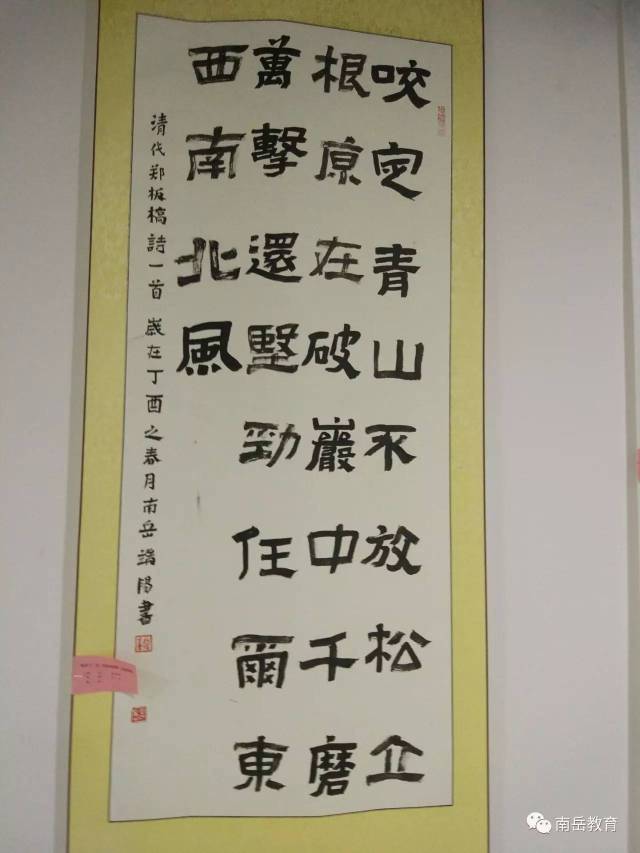 咬定青山不放松立
根原在破巖中千磨
萬擊還堅勁任爾東
西南北風
清代郑板橋詩一首 歲在丁酉之春月南岳端陽書
南岳教育